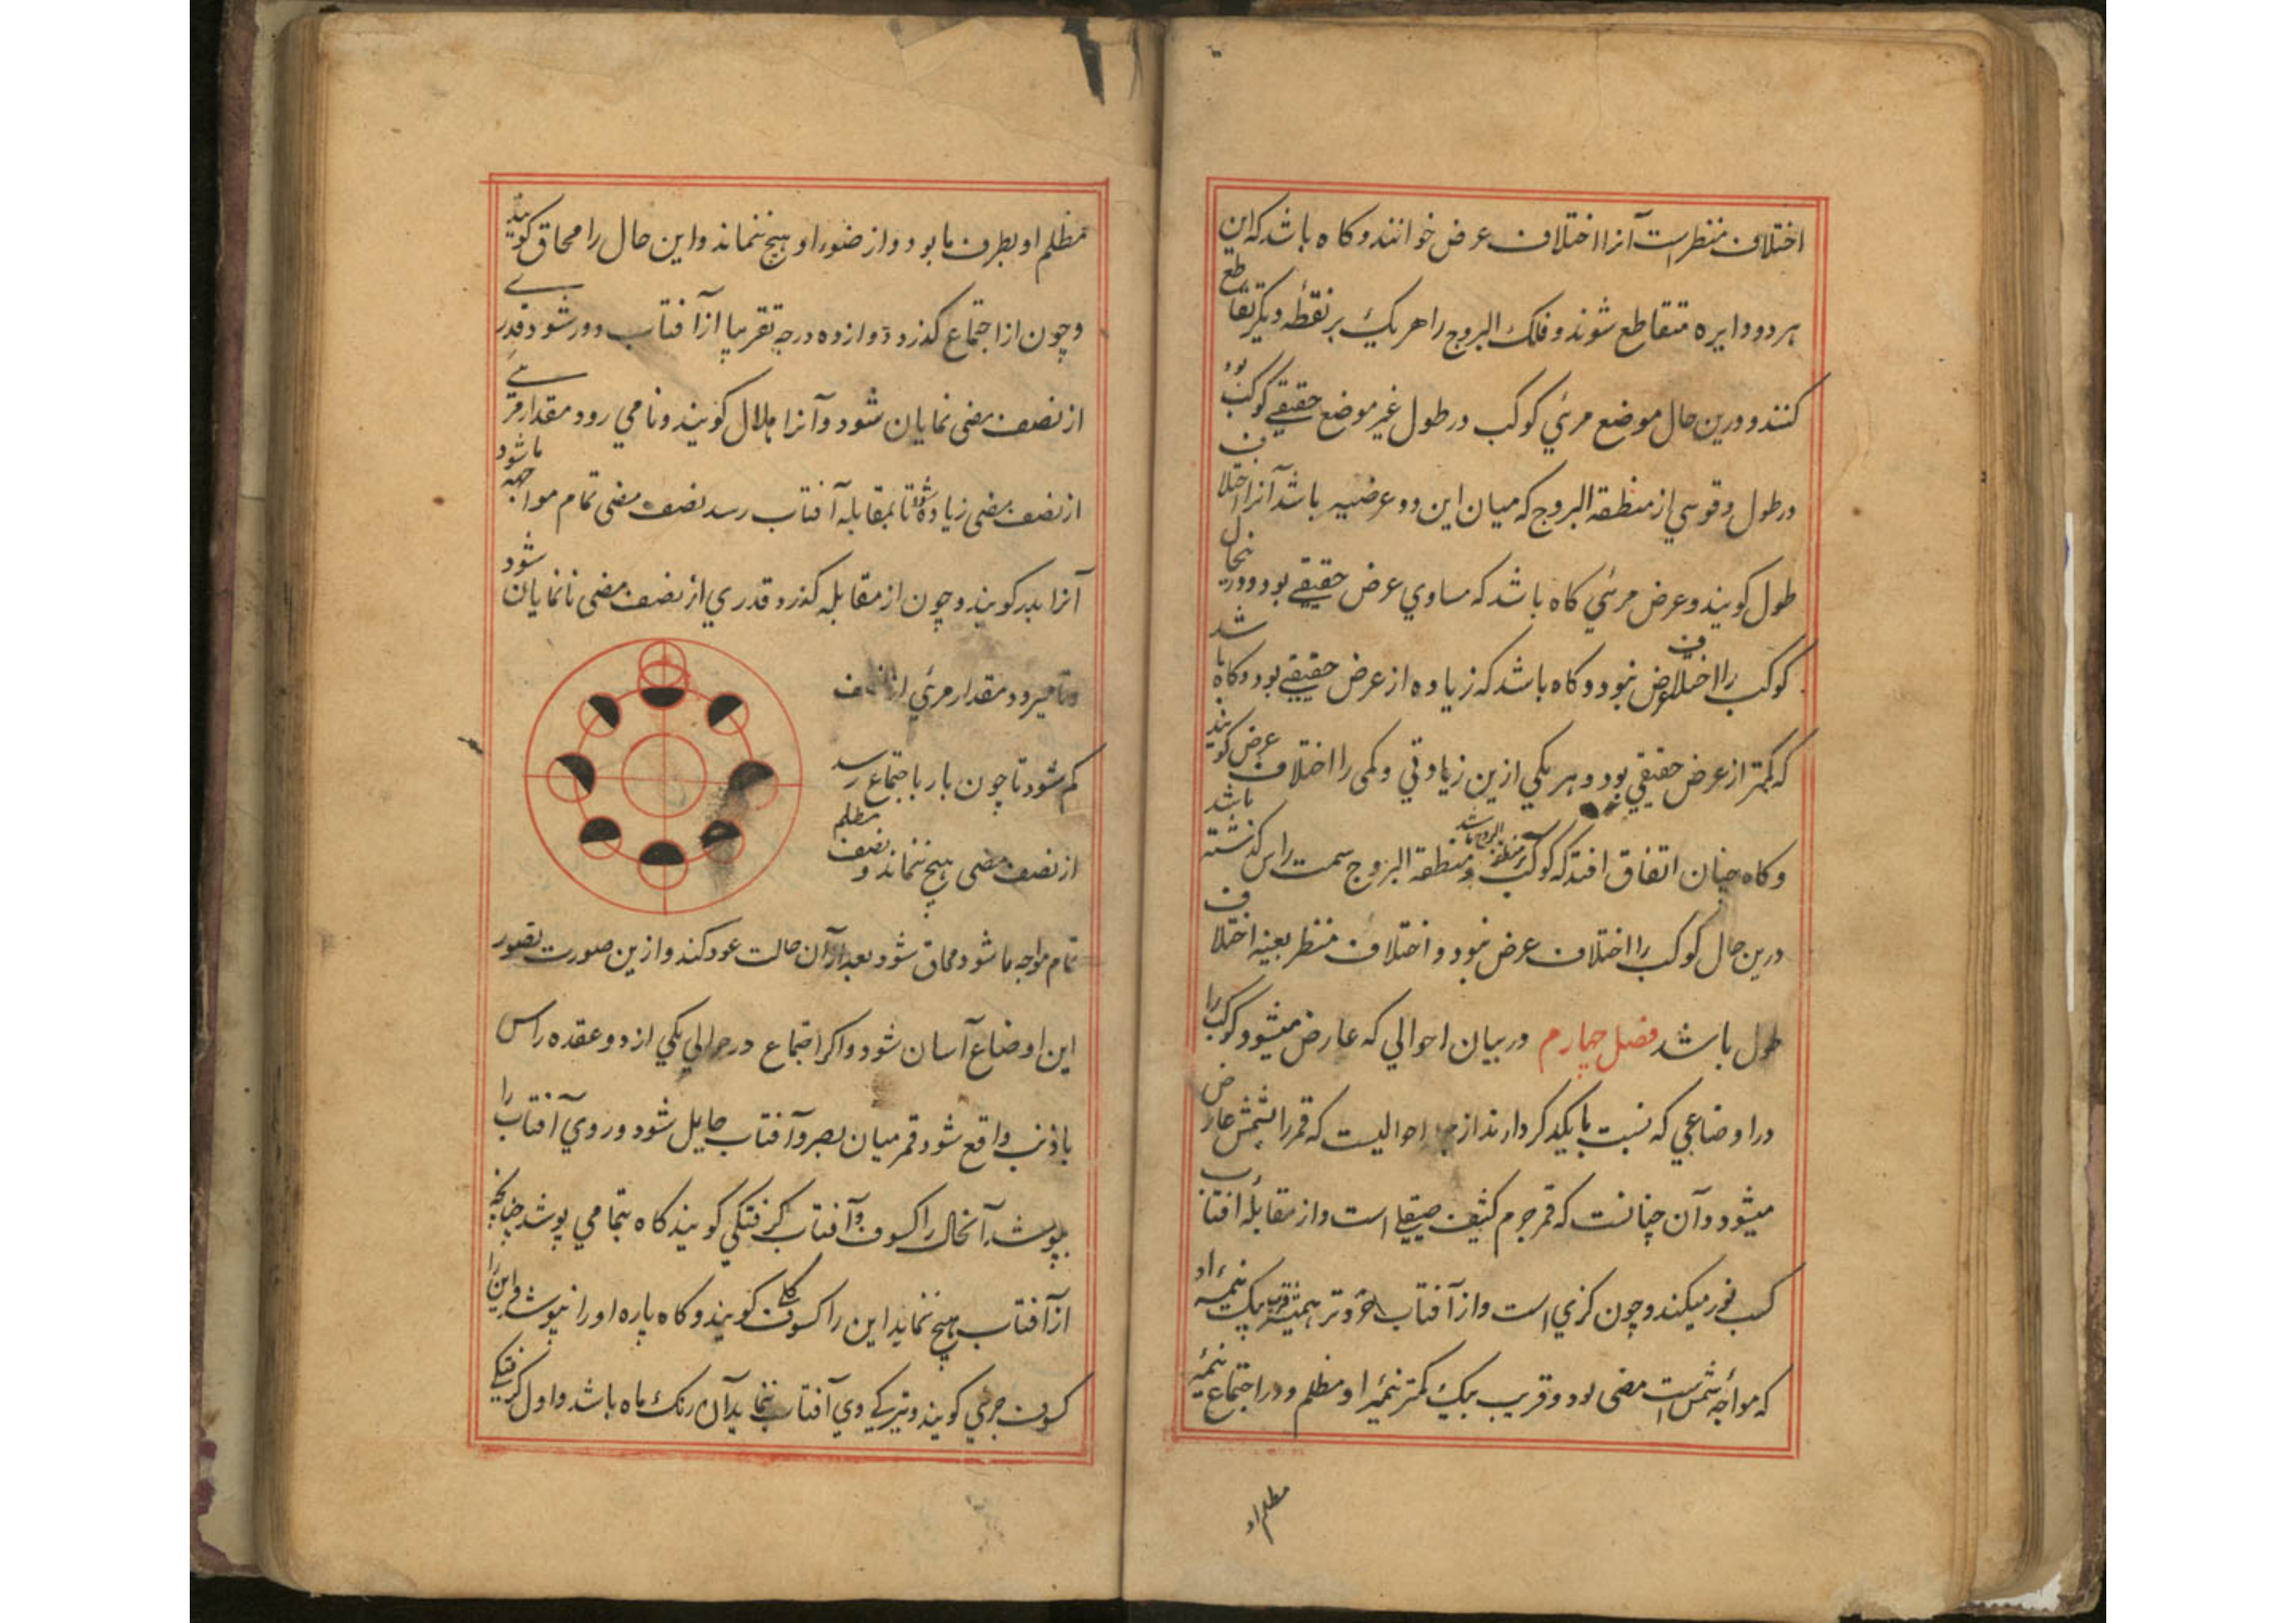 اختلاف منظرست آنرا اختلاف عرض خوانند و کاه باشد که این
هر دو دایره متقاطع شوند و فلک البروج را هر یک بر نقطهٔ دیکر تقاطع
کنند و درین حال موضع مرئي کوکب در طول غیر موضع حقیقے کوکب بود
در طول و قوسي از منطقه البروج که میان این دو عرضیه باشد آنرا اختلاف
طول کویند و عرض مرئي کاه باشد که مساوي عرض حقیقے بود و درینحال
کوکب را اختلاف عرض نبود و کاه باشد که زیاده از عرض حقیقے بود و کاه باشد
که کمتر از عرض حقیقي بود و هر یکي ازین زیادتي و کمی را اختلاف عرض کویند
و کاه چنان اتفاق افتد که کوکب بر منطقه البروج باشد و منطقه البروج سمت راس کذشته باشد
درین حال کوکب را اختلاف عرض نبود و اختلاف منظر بعینه اختلاف
طول باشد فصل چهارم در بیان احوالي که عارض میشود کوکب را
در اوضاعي که نسبت بایکدکر دارند از احوالیست که قمر را بشمس عارض
میشود و آن چنانست که قمر جرم کثیف صیقلے است و از مقابلهٔ افتاب
کسب نور میکند و چون کري است و از آفتاب خردتر همیشه قریب یک نیمهٔ او
که مواجهٔ شمس است مضی بود و قریب بیک کمتر نیمهٔ او مظلم و در اجتماع نیمهٔ
مظلم او
مظلم او بطرف ما بود و از ضوء او هیچ ننماند و این حال را محاق کویند
و چون از اجتماع کذرد دوازده درجه تقریبا از آفتاب دور شود قدرے
از نصف مضی نمایان شود و آنرا هلال کویند و نامي رود مقدار مرئے
از نصف مضی زیاده شود تا بمقابله آفتاب رسد نصف مضی تمام مواجهه ما شود
آنرا بدر کویند و چون از مقابله کذرد قدري از نصف مضی نانمایان شود
و تا میرود مقدار مرئي از نصف
کم شود تا چون بار باجتماع رسد
از نصف مضی هیچ ننماند و نصف مظلم
تمام مواجه ما شود و محاق شود بعد از آن حالت عود کند و ازین صورت تصور
این اوضاع آسان شود و اکر اجتماع در حوالي یکي از دو عقده راس
یا ذنب واقع شود قمر میان بصر و آفتاب حایل شود و روي آفتاب را
بپوشد آنحال را کسوف و آفتاب کرفتکي کویند کاه بتمامي پوشد چنانچه
از آفتاب هیچ ننماید این را کسوف کلے کویند و کاه پاره او را بپوشد و این را
کسوف جزئي کویند و تیرکے روي آفتاب بنماید آن رنک ماه باشد و اول کرفتکے